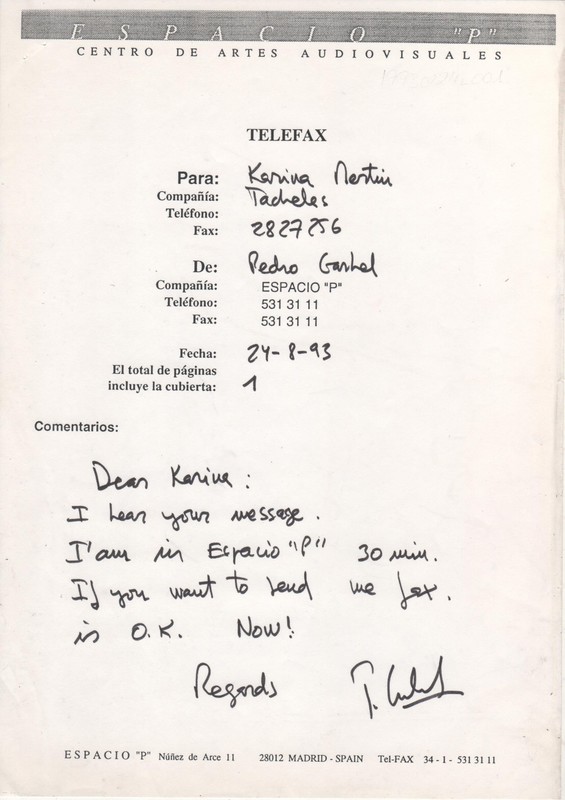 ESPACIO "P"
CENTRO DE ARTES AUDIOVISUALES
TELEFAX
Para: Karina Mertin
Compañía: Tacheles
Teléfono:
Fax: 2827256
De: Pedro Garhel
Compañía: ESPACIO "P"
Teléfono: 531 31 11
Fax: 531 31 11
Fecha: 24-8-93
El total de páginas
incluye la cubierta: 1
Comentarios:
Dear Karina:
I hear your message.
I'am in Espacio "P" 30 min.
If you want to send me fax.
is O.K. Now!
Regards
ESPACIO "P" Núñez de Arce 11 28012 MADRID - SPAIN Tel-FAX 34 - 1 - 531 31 11